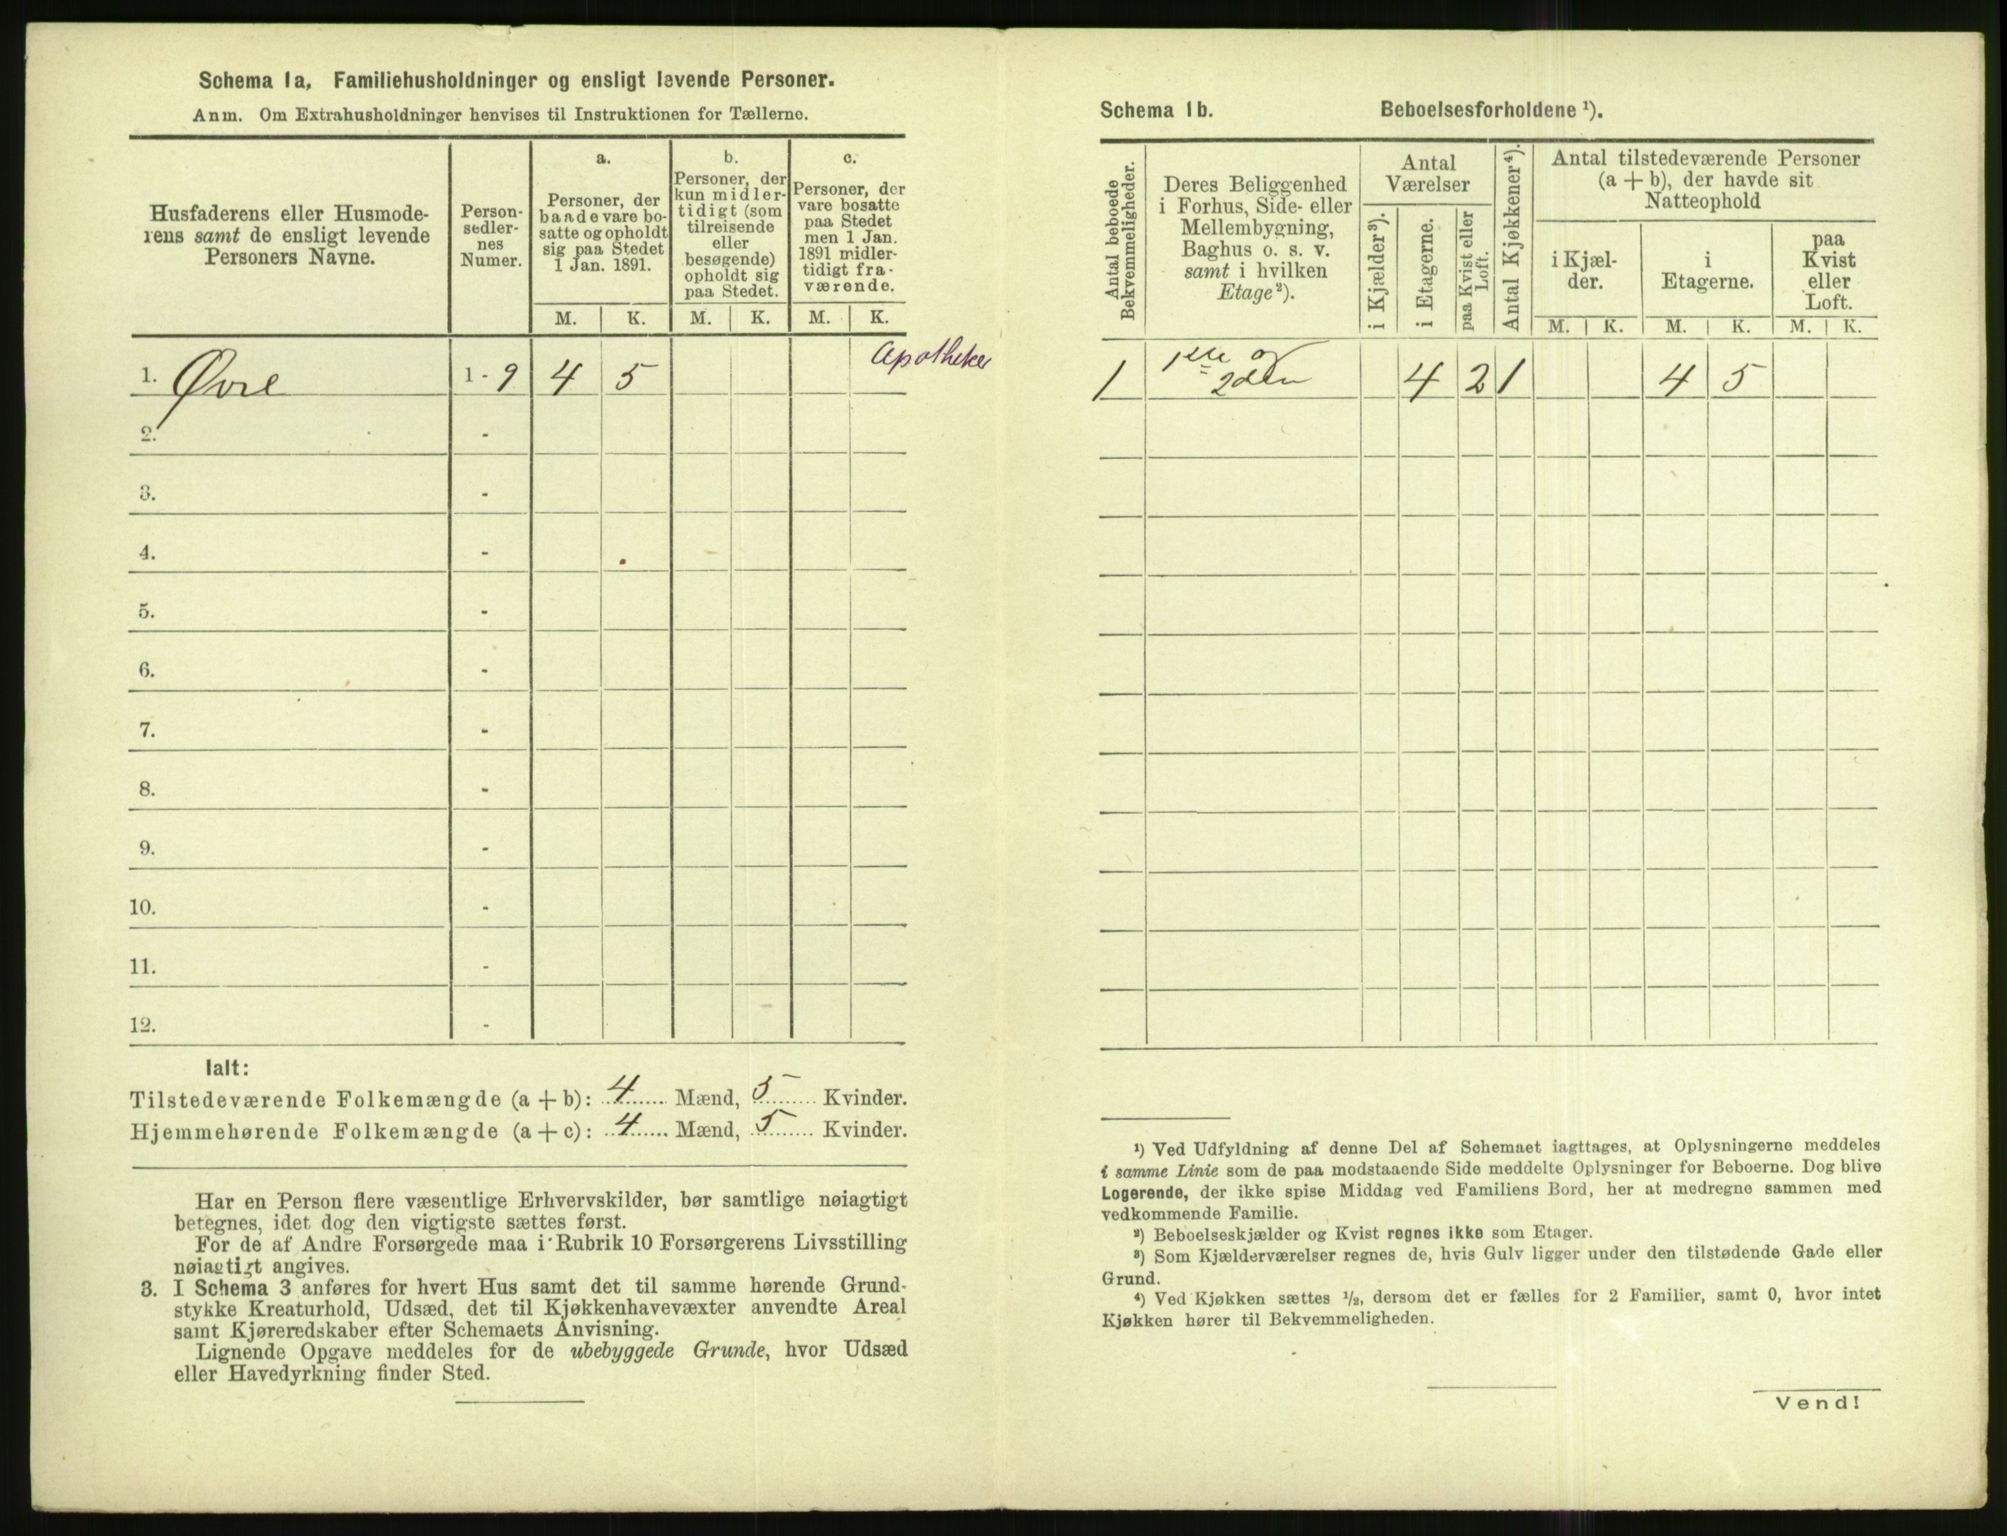 Schema 1a, Familiehusholdninger og ensligt levende Personer.
Anm. Om Extrahusholdninger henvises til Instruktionen for Tællerne.
Husfaderens eller Husmode-
rens samt de ensligt levende
Personers Navne.
Person-
sedler-
nes
Numer.
a.
Personer, der
baade vare bo-
satte og opholdt
sig paa Stedet
1 Jan. 1891.
b.
Personer, der
kun midler-
tidigt (som
tilreisende
eller
besøgende)
opholdt sig
paa Stedet.
c.
Personer, der
vare bosatte
paa Stedet
men 1 Jan.
1891 midler-
tidigt fra-
værende.
M. K. M. K. M. K.
1. Øvre 1 - 9 4 5 Apotheker
2. -
3. -
4. -
5. -
6. -
7. -
8. -
9. -
10. -
11. -
12. -
Ialt:
Tilstedeværende Folkemængde (a + b): 4 Mænd, 5 Kvinder.
Hjemmehørende Folkemængde (a + c): 4 Mænd, 5 Kvinder.
Har en Person flere væsentlige Erhvervskilder, bør samtlige nøiagtigt
betegnes, idet dog den vigtigste sættes først.
For de af Andre Forsørgede maa i Rubrik 10 Forsørgerens Livsstilling
nøiagtigt angives.
3. I Schema 3 anføres for hvert Hus samt det til samme hørende Grund-
stykke Kreaturhold, Udsæd, det til Kjøkkenhavevæxter anvendte Areal
samt Kjøreredskaber efter Schemaets Anvisning.
Lignende Opgave meddeles for de ubebyggede Grunde, hvor Udsæd
eller Havedyrkning finder Sted.
Schema 1b. Beboelsesforholdene ¹).
Antal beboede
Bekvemmeligheder.
Deres Beliggenhed
i Forhus, Side- eller
Mellembygning,
Baghus o. s. v.
samt i hvilken
Etage²).
Antal
Værelser
i Kjælder³).
i Etagerne.
paa Kvist eller
Loft.
Antal Kjøkkener⁴).
Antal tilstedeværende Personer
(a + b), der havde sit
Natteophold
i Kjæl-
der.
i
Etagerne.
paa
Kvist
eller
Loft.
M. K. M. K. M. K.
1 1ste og 4 2 1 4 5
2den
¹) Ved Udfyldning af denne Del af Schemaet iagttages, at Oplysningerne meddeles
i samme Linie som de paa modstaaende Side meddelte Oplysninger for Beboerne. Dog blive
Logerende, der ikke spise Middag ved Familiens Bord, her at medregne sammen med
vedkommende Familie.
²) Beboelseskjælder og Kvist regnes ikke som Etager.
³) Som Kjælderværelser regnes de, hvis Gulv ligger under den tilstødende Gade eller
Grund.
⁴) Ved Kjøkken sættes ½, dersom det er fælles for 2 Familier, samt 0, hvor intet
Kjøkken hører til Bekvemmeligheden.
Vend!